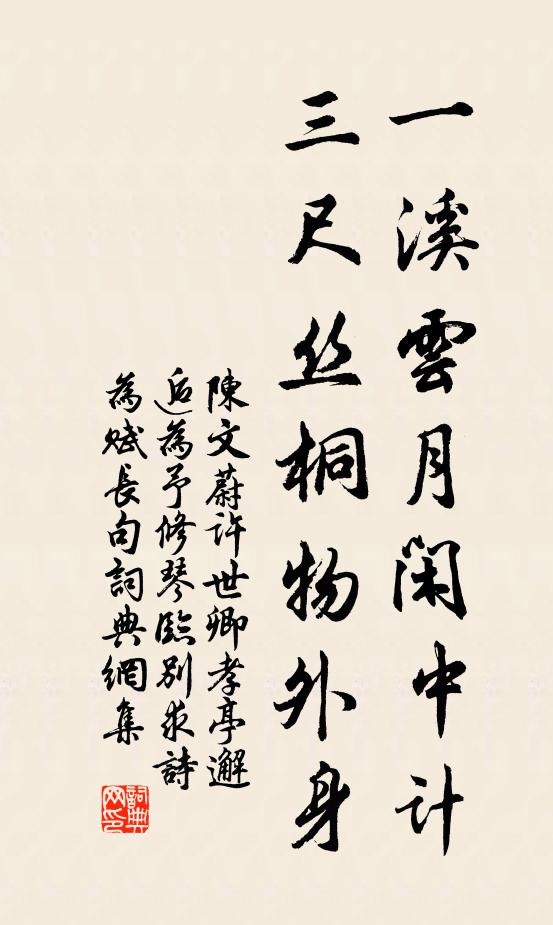 一溪雲月閑中計
三尺丝桐物外身
陳文蔚許世卿孝亭邂
逅為予修琴臨別求詩
為賦長句詞典網集
詞典
网印